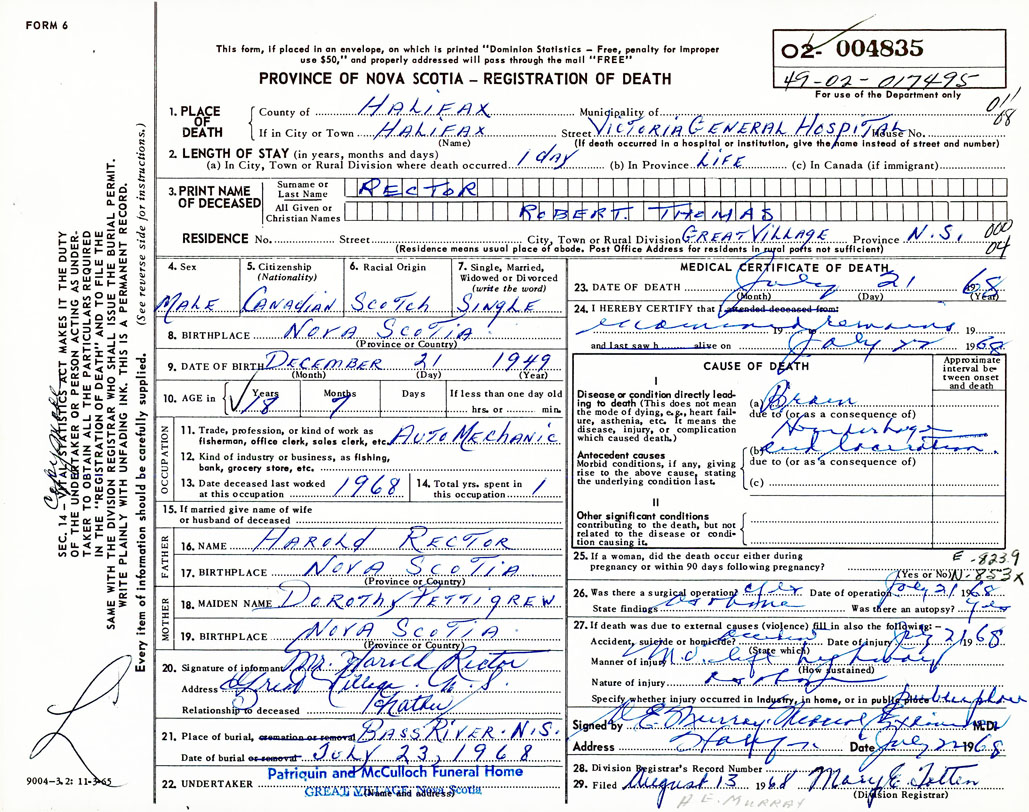 FORM 6
This form, if placed in an envelope, on which is printed "Dominion Statistics — Free, penalty for improper
use $50," and properly addressed will pass through the mail "FREE"
PROVINCE OF NOVA SCOTIA — REGISTRATION OF DEATH
02- 004835
49-02-017495
For use of the Department only
011
08
1. PLACE OF DEATH
County of HALIFAX Municipality of
If in City or Town HALIFAX Street VICTORIA GENERAL HOSPITAL House No.
(Name) (If death occurred in a hospital or institution, give the name instead of street and number)
2. LENGTH OF STAY (in years, months and days)
(a) In City, Town or Rural Division where death occurred 1 day (b) In Province LIFE (c) In Canada (if immigrant)
3. PRINT NAME OF DECEASED
Surname or Last Name RECTOR
All Given or Christian Names ROBERT. THOMAS
RESIDENCE No. Street City, Town or Rural Division GREAT VILLAGE Province N.S.
(Residence means usual place of abode. Post Office Address for residents in rural parts not sufficient)
000
04
4. Sex 5. Citizenship (Nationality) 6. Racial Origin 7. Single, Married, Widowed or Divorced (write the word)
MALE CANADIAN SCOTCH SINGLE
8. BIRTHPLACE NOVA SCOTIA
(Province or Country)
9. DATE OF BIRTH DECEMBER 21 1949
(Month) (Day) (Year)
10. AGE in Years Months Days If less than one day old
18 7 hrs. or min.
OCCUPATION
11. Trade, profession, or kind of work as
fisherman, office clerk, sales clerk, etc. AUTO MECHANIC
12. Kind of industry or business, as fishing,
bank, grocery store, etc.
13. Date deceased last worked at this occupation 1968
14. Total yrs. spent in this occupation 1
15. If married give name of wife
or husband of deceased
FATHER
16. NAME HAROLD RECTOR
17. BIRTHPLACE NOVA SCOTIA
(Province or Country)
MOTHER
18. MAIDEN NAME DOROTHY PETTIGREW
19. BIRTHPLACE NOVA SCOTIA
(Province or Country)
20. Signature of informant Mr. Harold Rector
Address Great Village N.S.
Relationship to deceased Father
21. Place of burial, cremation or removal BASS RIVER. N.S.
Date of burial or removal JULY 23, 1968
22. UNDERTAKER Patriquin and McCulloch Funeral Home
GREAT VILLAGE, Nova Scotia
(Name and address)
MEDICAL CERTIFICATE OF DEATH
23. DATE OF DEATH July 21 1968
(Month) (Day) (Year)
24. I HEREBY CERTIFY that I attended deceased from:
examined remains 19
and last saw h alive on July 22 1968
CAUSE OF DEATH
Approximate interval between onset and death
I
Disease or condition directly leading to death (This does not mean the mode of dying, e.g., heart failure, asthenia, etc. It means the disease, injury, or complication which caused death.)
(a) Brain
due to (or as a consequence of)
Hemorrhage
Antecedent causes
Morbid conditions, if any, giving rise to the above cause, stating the underlying condition last.
(b) and laceration
due to (or as a consequence of)
(c)
II
Other significant conditions
contributing to the death, but not related to the disease or condition causing it.
25. If a woman, did the death occur either during
pregnancy or within 90 days following pregnancy?
(Yes or No)
E -8239
N-853X
26. Was there a surgical operation? yes Date of operation July 21 1968
State findings as above Was there an autopsy? yes
27. If death was due to external causes (violence) fill in also the following:—
Accident, suicide or homicide? accident Date of injury July 21 1968
(State which)
Manner of injury highway
(How sustained)
Nature of injury as above
Specify whether injury occurred in industry, in home, or in public place Public place
Signed by H E Murray Medical Examiner M.D.
Address Date July 22 1968
28. Division Registrar's Record Number
29. Filed August 13 1968 Mary E. Totten
(Division Registrar)
H E. MURRAY
SEC. 14 — VITAL STATISTICS ACT MAKES IT THE DUTY
OF THE UNDERTAKER OR PERSON ACTING AS UNDER-
TAKER TO OBTAIN ALL THE PARTICULARS REQUIRED
IN THE "REGISTRATION OF DEATH" AND TO FILE THE
SAME WITH THE DIVISION REGISTRAR WHO SHALL ISSUE THE BURIAL PERMIT.
WRITE PLAINLY WITH UNFADING INK. THIS IS A PERMANENT RECORD.
Every item of information should be carefully supplied. (See reverse side for instructions.)
9004-3.2: 11-3-65